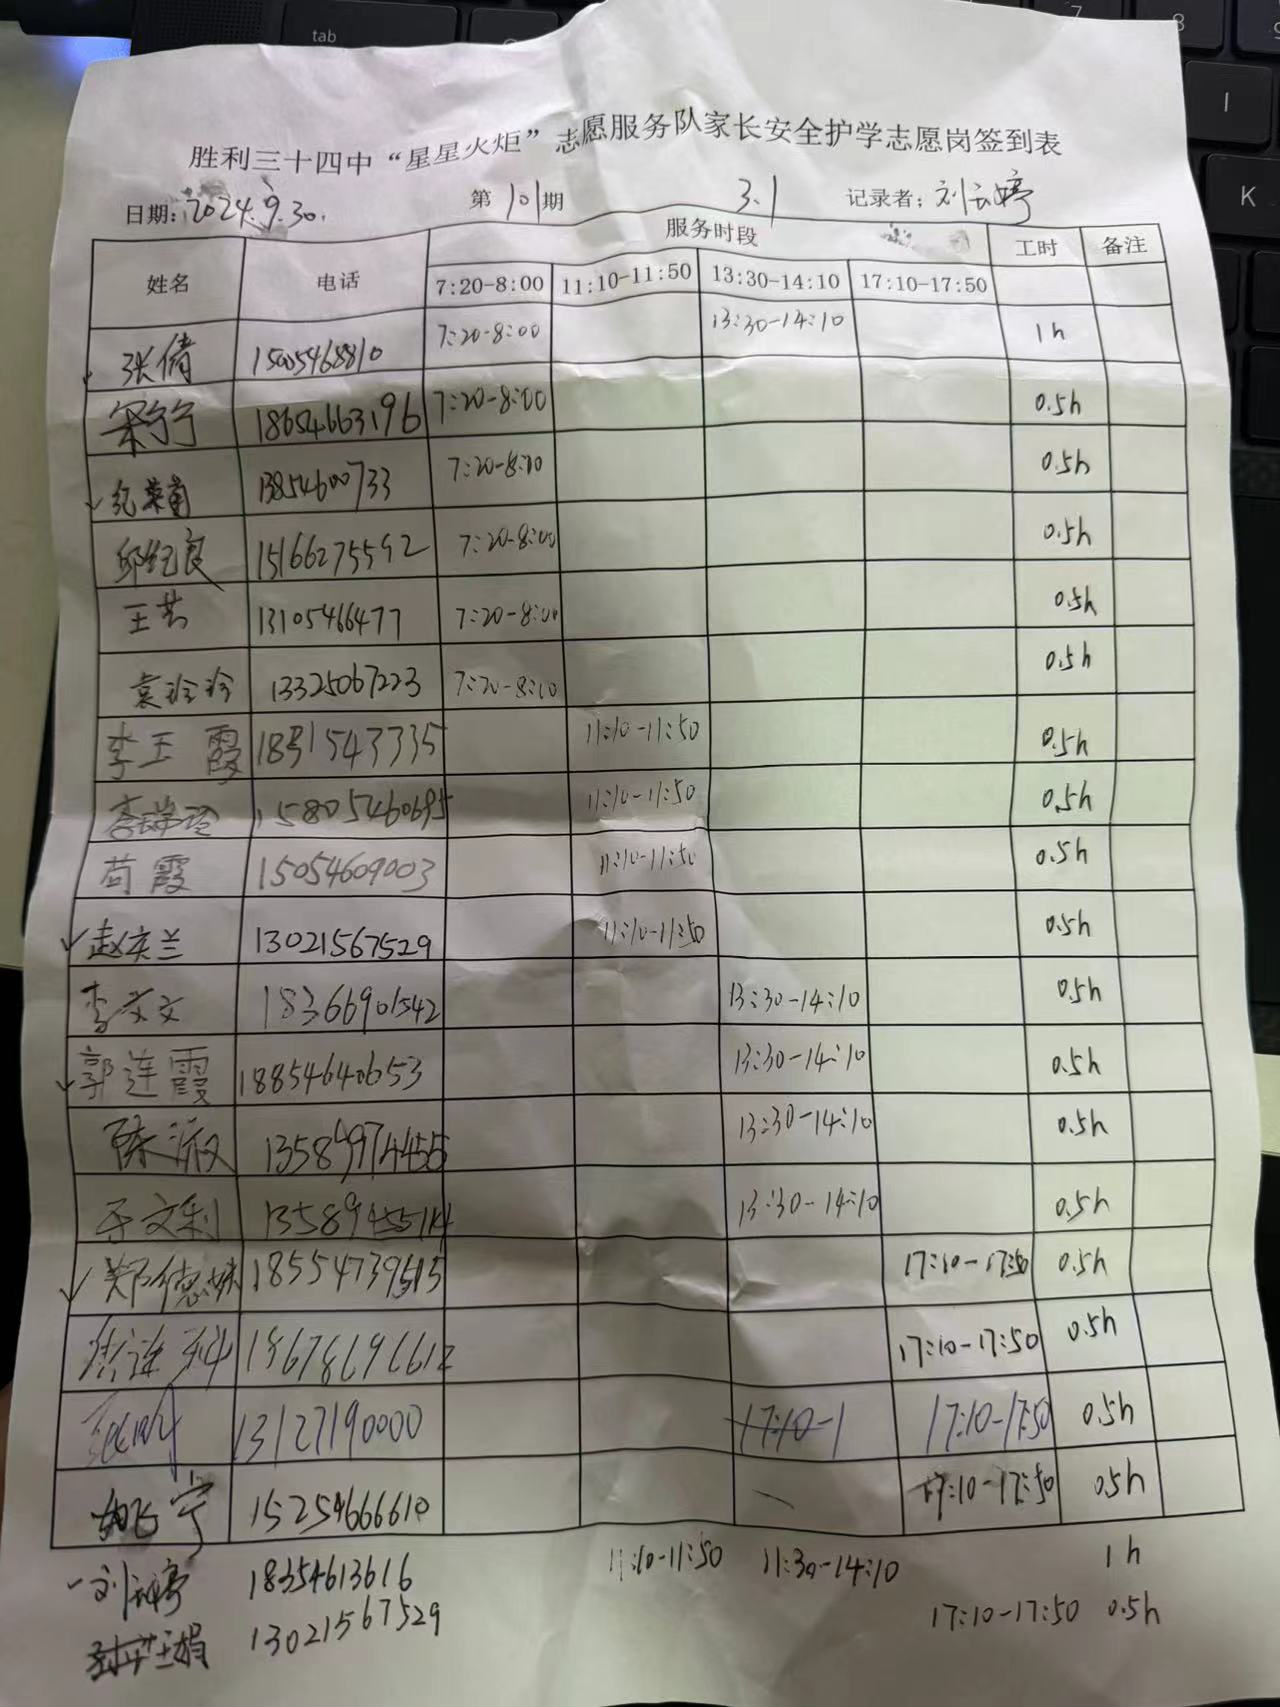 tab
7
8
I
K
胜利三十四中“星星火炬”志愿服务队家长安全护学志愿岗签到表
日期: 2024.9.30. 第101期 3.1 记录者: 刘云婷
姓名 电话 服务时段 工时 备注
7:20-8:00 11:10-11:50 13:30-14:10 17:10-17:50
张倩 15005468810 7:20-8:00 13:30-14:10 1h
18654663196 7:20-8:00 0.5h
纪荣菊 13854600733 7:20-8:00 0.5h
邱纪良 15166275592 7:20-8:00 0.5h
王芸 13105466477 7:20-8:00 0.5h
袁玲玲 13325067223 7:20-8:00 0.5h
李玉霞 1543335 11:10-11:50 0.5h
李瑞玲 15805460695 11:10-11:50 0.5h
苟霞 15054609003 11:10-11:50 0.5h
赵庆兰 13021567529 11:10-11:50 0.5h
李文文 18366901542 13:30-14:10 0.5h
郭连霞 18854640653 13:30-14:10 0.5h
陈淑 13:30-14:10 0.5h
于文利 13:30-14:10 0.5h
郑德妹 18554739515 17:10-17:50 0.5h
17:10-17:50 0.5h
13127190000 17:10-1 17:10-17:50 0.5h
宁 15254666610 17:10-17:50 0.5h
刘云婷 18354613616 11:10-11:50 11:30-14:10 1h
13021567529 17:10-17:50 0.5h